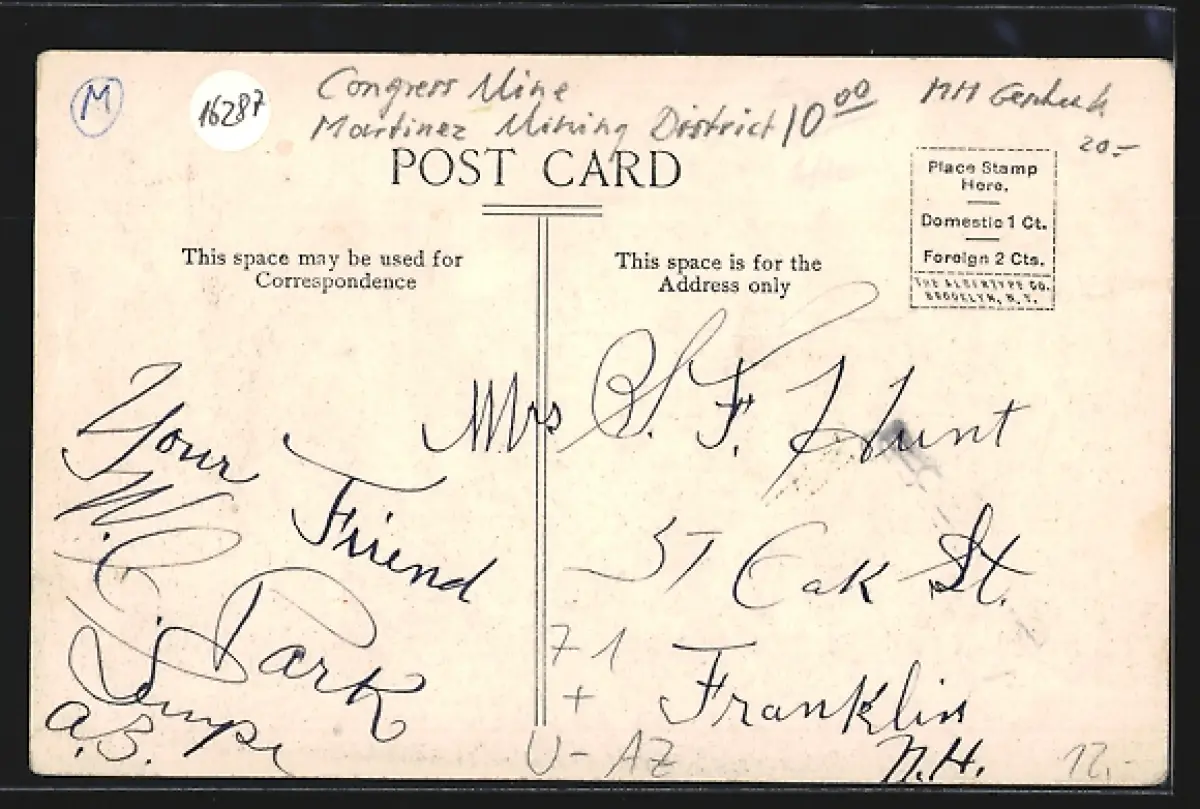 M
16287
Congress Mine
Martinez Mining District 10 00
MH
20.-
POST CARD
Place Stamp
Here.
Domestic 1 Ct.
Foreign 2 Cts.
THE ALBERTYPE CO.
BROOKLYN, N. Y.
This space may be used for
Correspondence
This space is for the
Address only
Mrs S. F. Hunt
57 Oak St.
Franklin
N.H.
Your
Friend
W. C. Park
A.B.
71
+
U - AZ
12.-